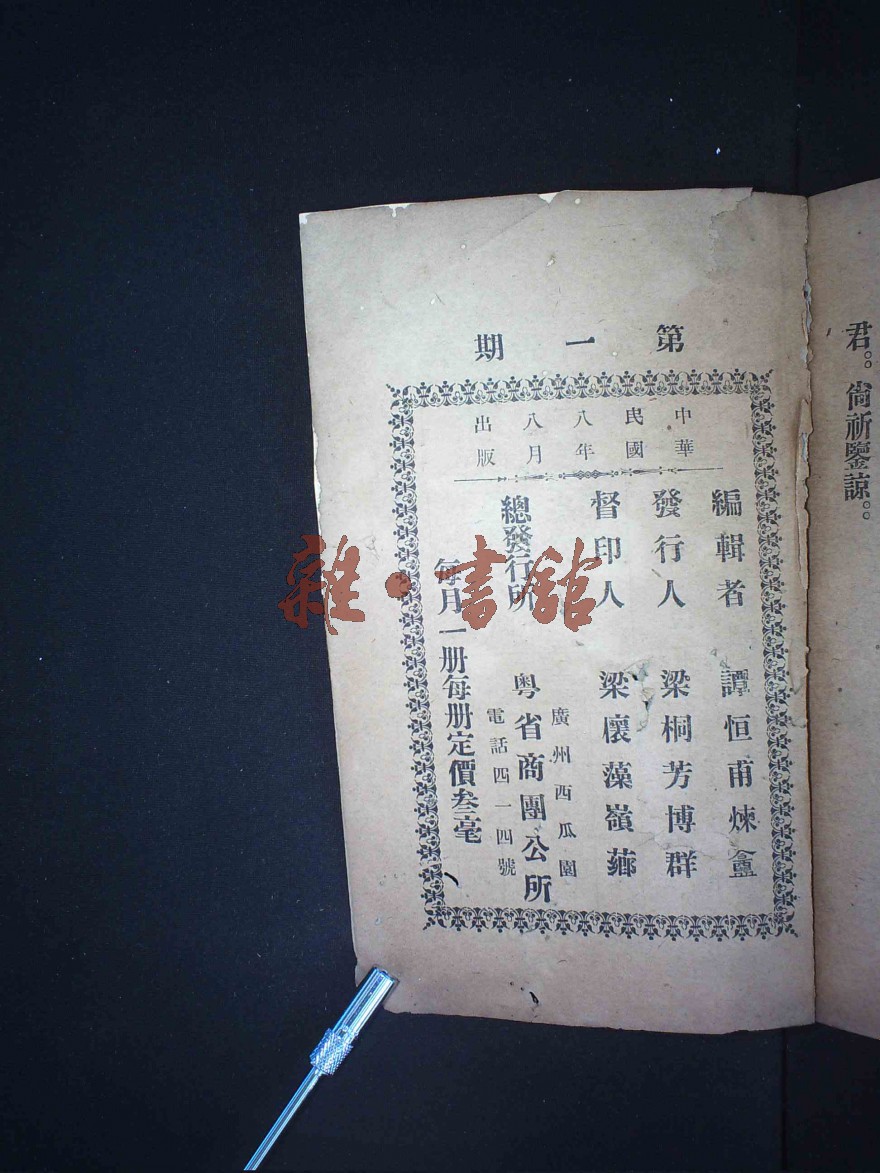 君。尙祈鑒諒。
第一期
中華
民國
八年
八月
出版
編輯者 譚恒甫煉盦
發行人 梁桐芳博群
督印人 梁櫰藻嶺薌
總發行所
廣州西瓜園
粵省商團公所
電話四一四號
每月一册每册定價叁毫
雜·書館